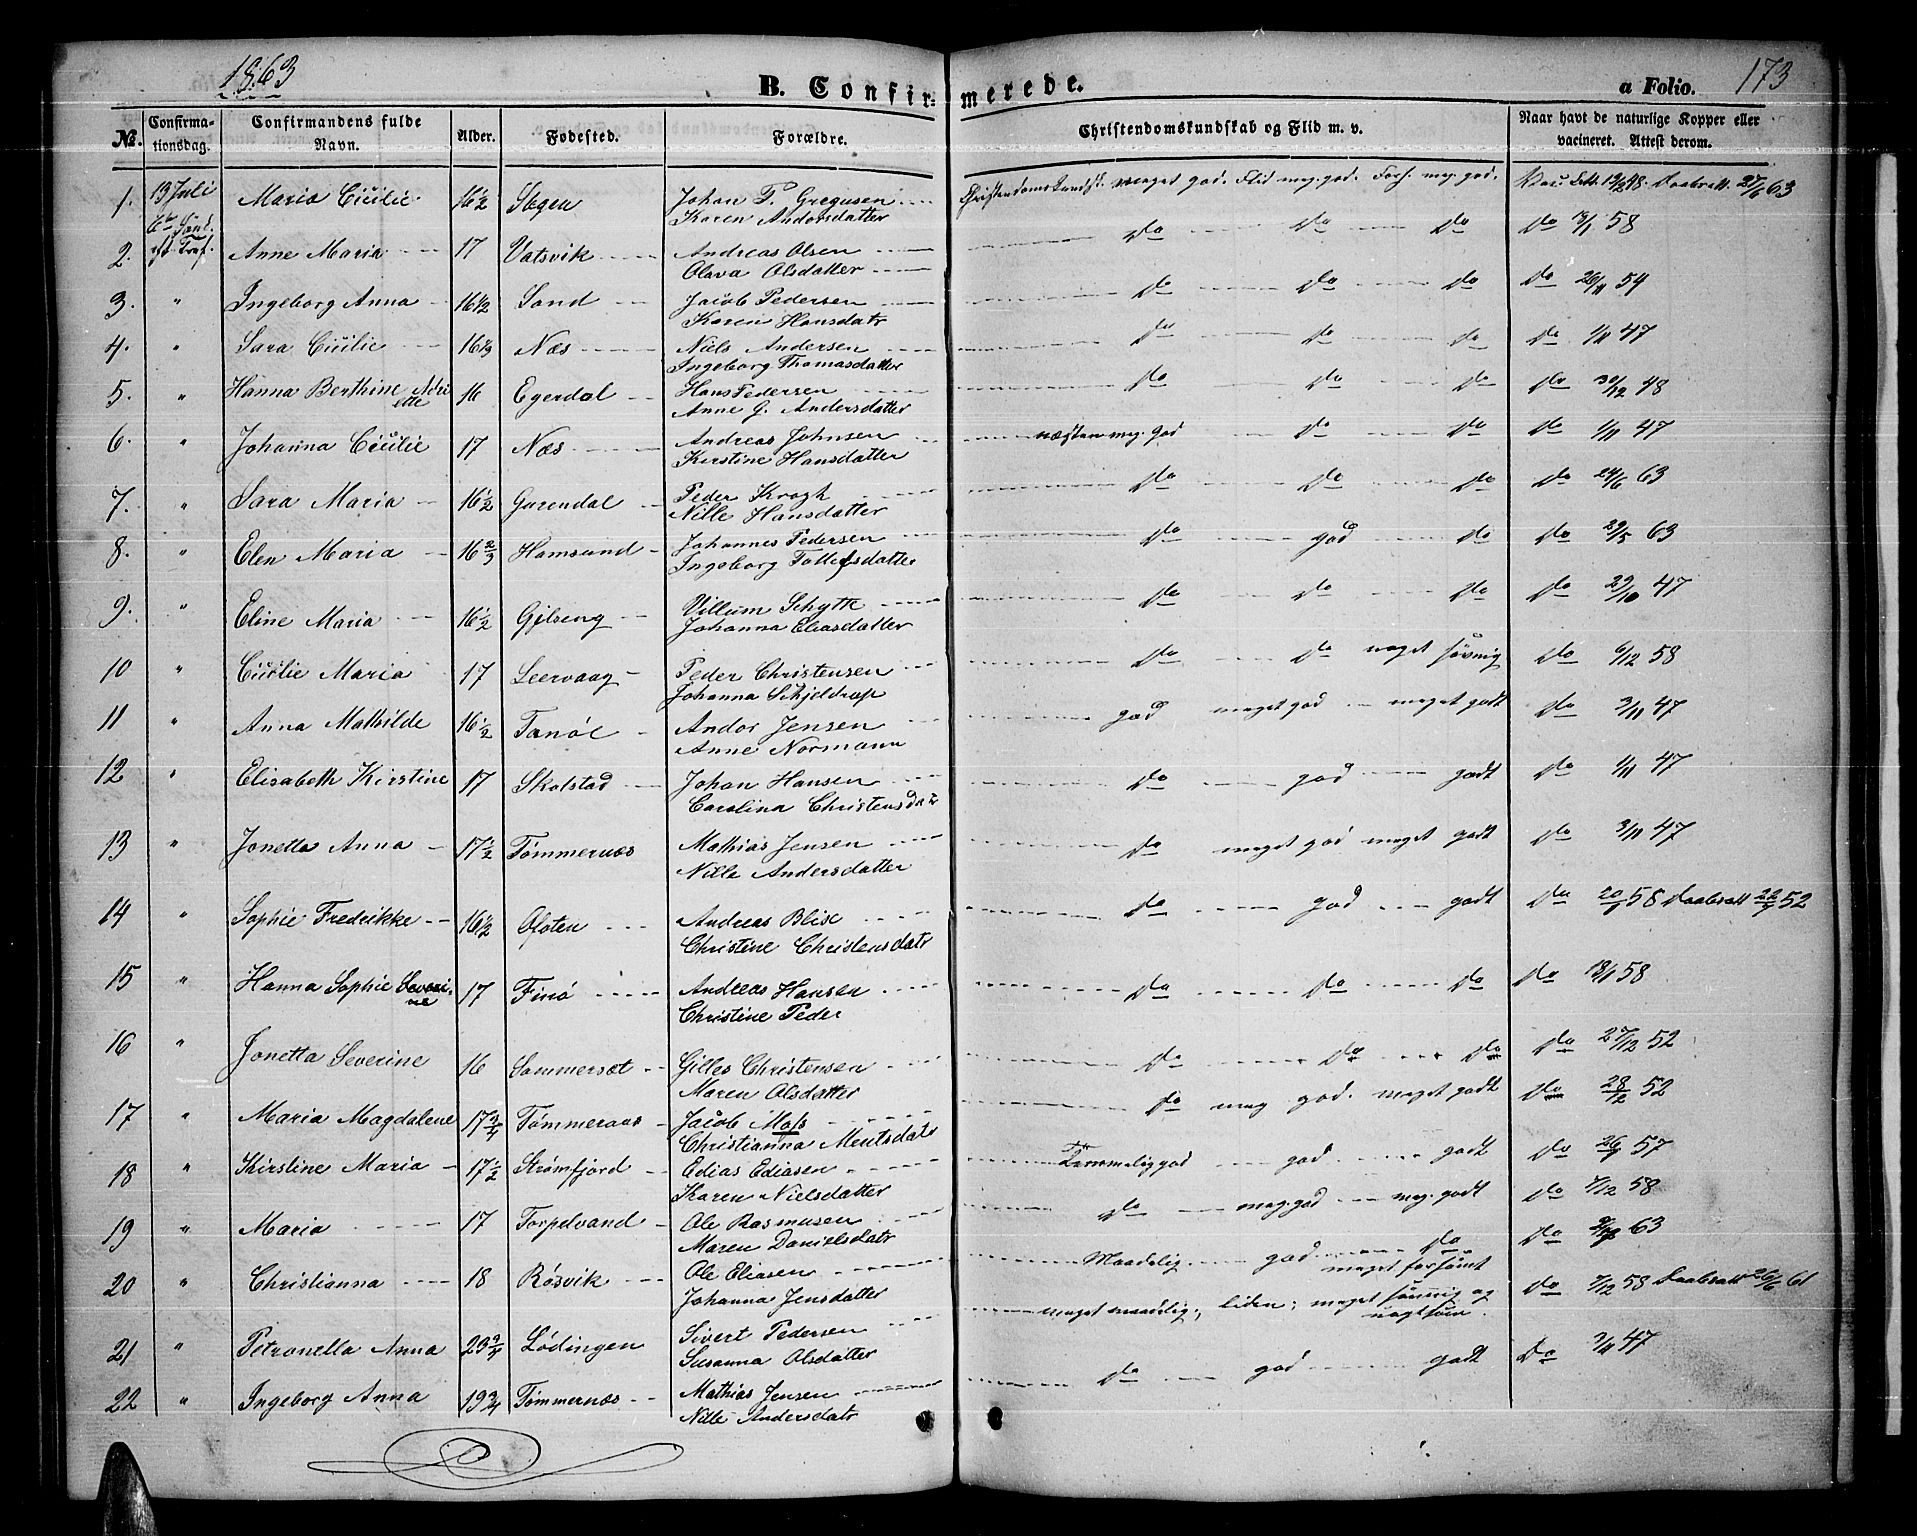 1863 B. Confirmerede. a Folio. 173
No. Confirmationsdag. Confirmandens fulde Navn. Alder. Fødested. Forældre. Christendomskundskab og Flid m. v. Naar havt de naturlige Kopper eller vacineret. Attest derom.
1. 13 Juli Maria Cicilie 16½ Johan P. Gregusen meget god. Flid meg. god. Forh. meg. god. 63
6te Sønd. Karen Andorsdatter
2. eft. Anne Maria 17 Vatsvik Andreas Olsen do do do do 3/1 58
Olava Olsdatter
3. " Ingeborg Anna 16½ Sand Jacob Pedersen do do do do 26/11 54
Karen Hansdatr
4. " Sara Cicilie 16⅓ Næs Niels Andersen do do do do 1/11 47
Ingeborg Thomasdatter
5. " Hanna Berthine 16 Egerdal Hans Pedersen do do do do 30/12 48
Anne G. Andersdatter
6. " Johanna Cicilie 17 Næs Andreas Johnsen næsten meg. god do do do 1/11 47
Kirstine Hansdatter
7. " Sara Maria 16½ Garendal Peder Krogh do do do do 24/6 63
Nille Hansdatter
8. " Elen Maria 16⅔ Hamsund Johannes Pedersen do god do do 29/5 63
Ingeborg Tollefsdatter
9. " Eline Maria 16½ Villum Schytte do do do do 29/10 47
Johanna Eliasdatter
10 " Cicilie Maria 17 Leervaag Peder Christensen do do noget do 6/12 58
Johanna Schjeldrup
11 " Anna Mathilde 16½ Tanöe Andor Jensen god meget god meget godt do 3/11 47
Anne Normann
12 " Elisabeth Kirstine 17 Skolstad Johan Hansen do god godt do 1/11 47
Carolina Christensdatr
13 " Jonetta Anna 17½ Tømmernæs Mathias Jensen do meget god meget godt do 3/11 47
Nille Andersdatter
14 " Sophie Fredrikke 16½ Ofoten Andreas Blix do god godt do 58 52
Christine Christensdatr
15 " Hanna Sophie Severine 17 Finö Andreas Hansen do do do do 58
Christine Peder
16 " Jonetta Severine 16 Sommersæt Gilles Christensen do do do do 27/12 52
Maren Olsdatter
17 " Maria Magdalene 17¾ Tømmernæs Jacob Mops do meg god. meget godt do 28/2 52
Christianna Mentsdatr
18 " Kirstine Maria 17½ Strømfjord Edias Ediasen Temmelig god god godt do 57
Karen Nielsdatter
19 " Maria 17 Torpelvand Ole Rasmusen do meg. god meg. godt do 7/12 58
Maren Danielsdatr
20 " Christianna 18 Rösvik Ole Eliasen Maadelig god do do 63
Johanna Jensdatter meget forsömt
21 " Petronella Anna 23¾ Lødingen Sivert Pedersen meget maadelig; liden; meget og do 7/12 58 26/6 61
Susanna Olsdatter
22 " Ingeborg Anna 19¾ Tømmernæs Mathias Jensen do god godt do 3/11 47
Nille Andersdatr